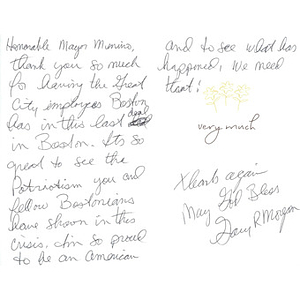 Honorable Mayor Menino,
thank you so much
for having the Great
City employees Boston
has in this last deal
in Boston. Its so
great to see the
Patriotism you and
fellow Bostonians
have shown in this
crisis. Im so proud
to be an American
and to see what has
happened, We need
that!
very much
thanks again
May God Bless
Gary R Morgan